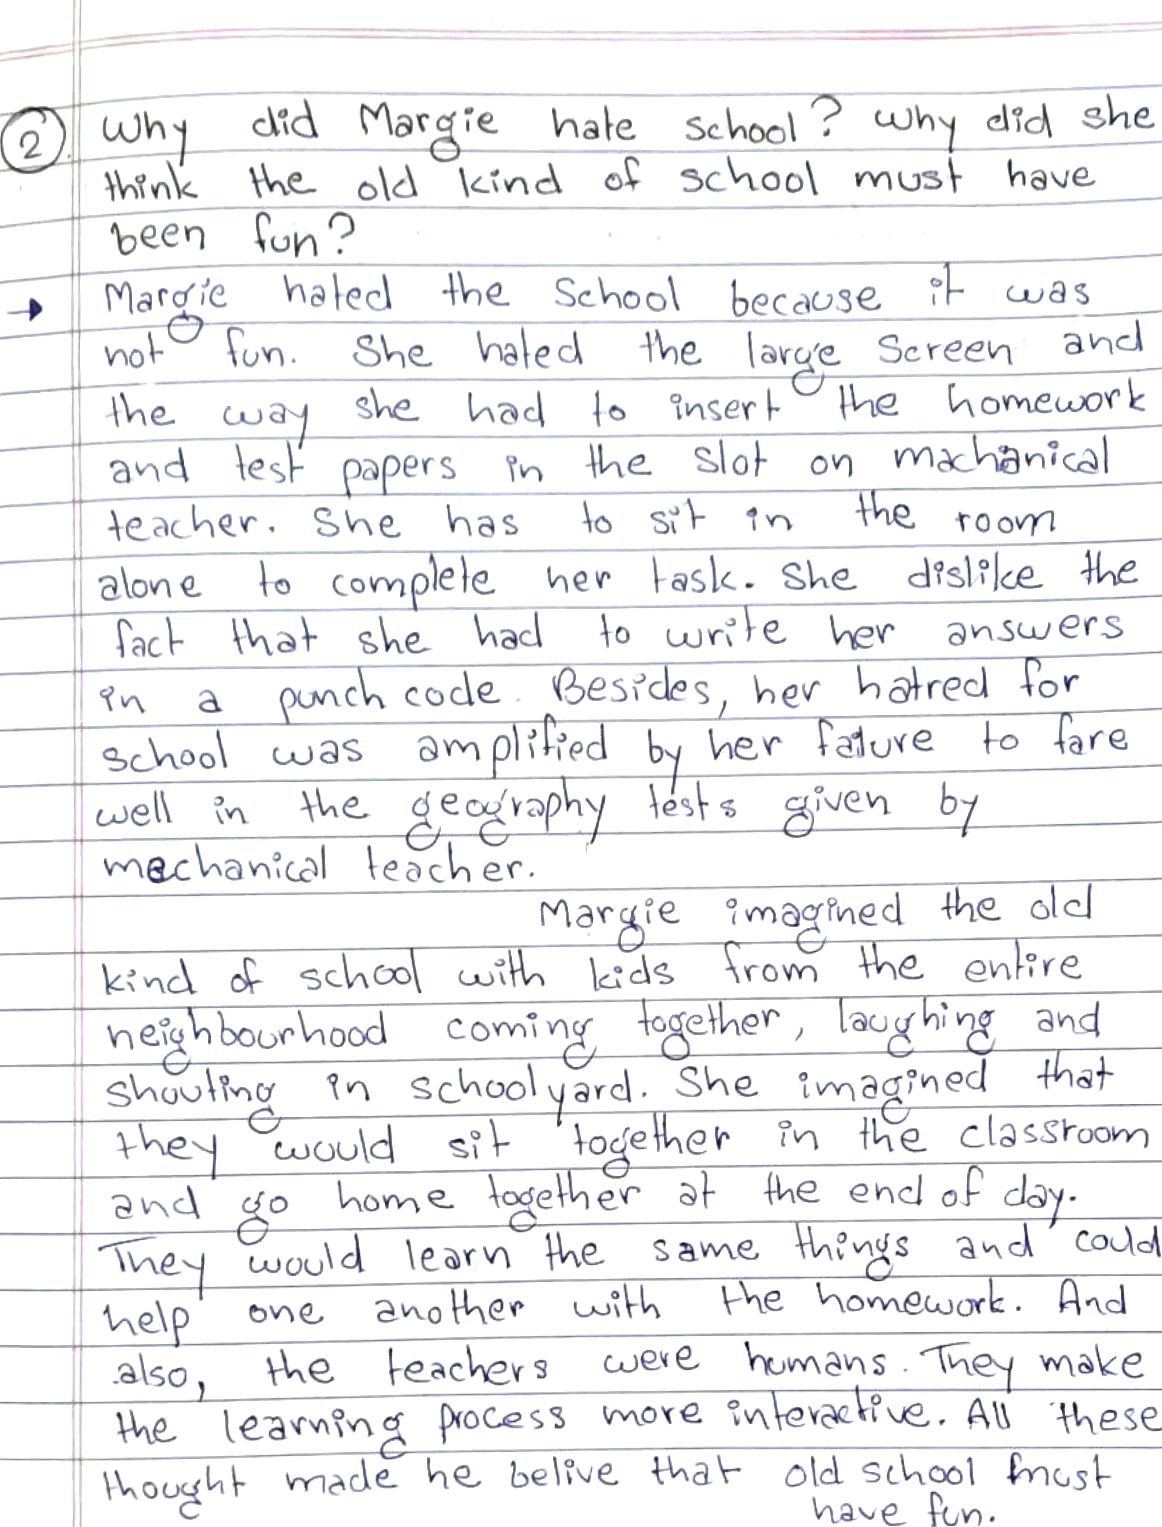 2 Why did Margie hate school? Why did she
think the old kind of school must have
been fun?
→ Margie hated the School because it was
not fun. She hated the large Screen and
the way she had to insert the homework
and test papers in the slot on machanical
teacher. She has to sit in the room
alone to complete her task. She dislike the
fact that she had to write her answers
in a punch code. Besides, her hatred for
school was amplified by her faiure to fare
well in the geography tests given by
mechanical teacher.
Margie imagined the old
kind of school with kids from the entire
neighbourhood coming together, laughing and
shouting in schoolyard. She imagined that
they would sit together in the classroom
and go home together at the end of day.
They would learn the same things and could
help one another with the homework. And
also, the teachers were humans. They make
the learning process more interactive. All these
thought made he belive that old school must
have fun.